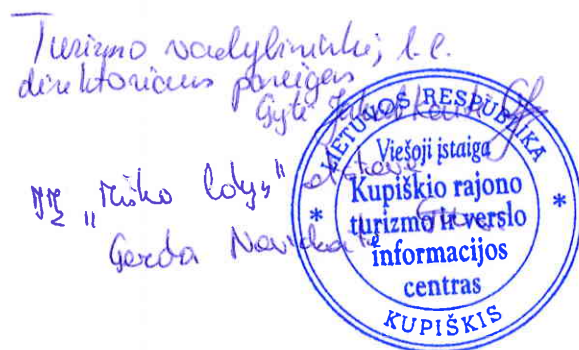 Turizmo vadybininkė, l. e.
direktoriaus pareigas
Gytė
IĮ „Miško lobys“
Gerda
LIETUVOS RESPUBLIKA
Viešoji įstaiga
Kupiškio rajono
turizmo ir verslo
informacijos
centras
* KUPIŠKIS *